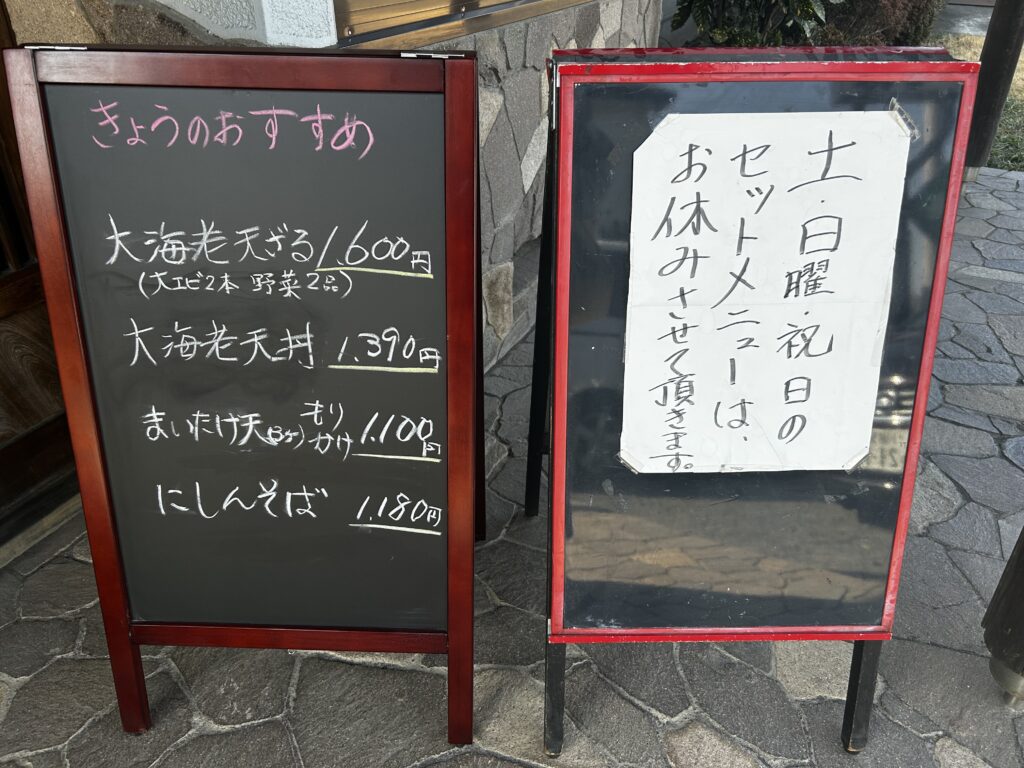 きょうのおすすめ
大海老天ざる 1.600円
(大エビ2本 野菜2品)
大海老天丼 1.390円
まいたけ天(3ケ) もり
かけ 1.100円
にしんそば 1.180円
土・日曜・祝日の
セットメニューは、
お休みさせて頂きます。